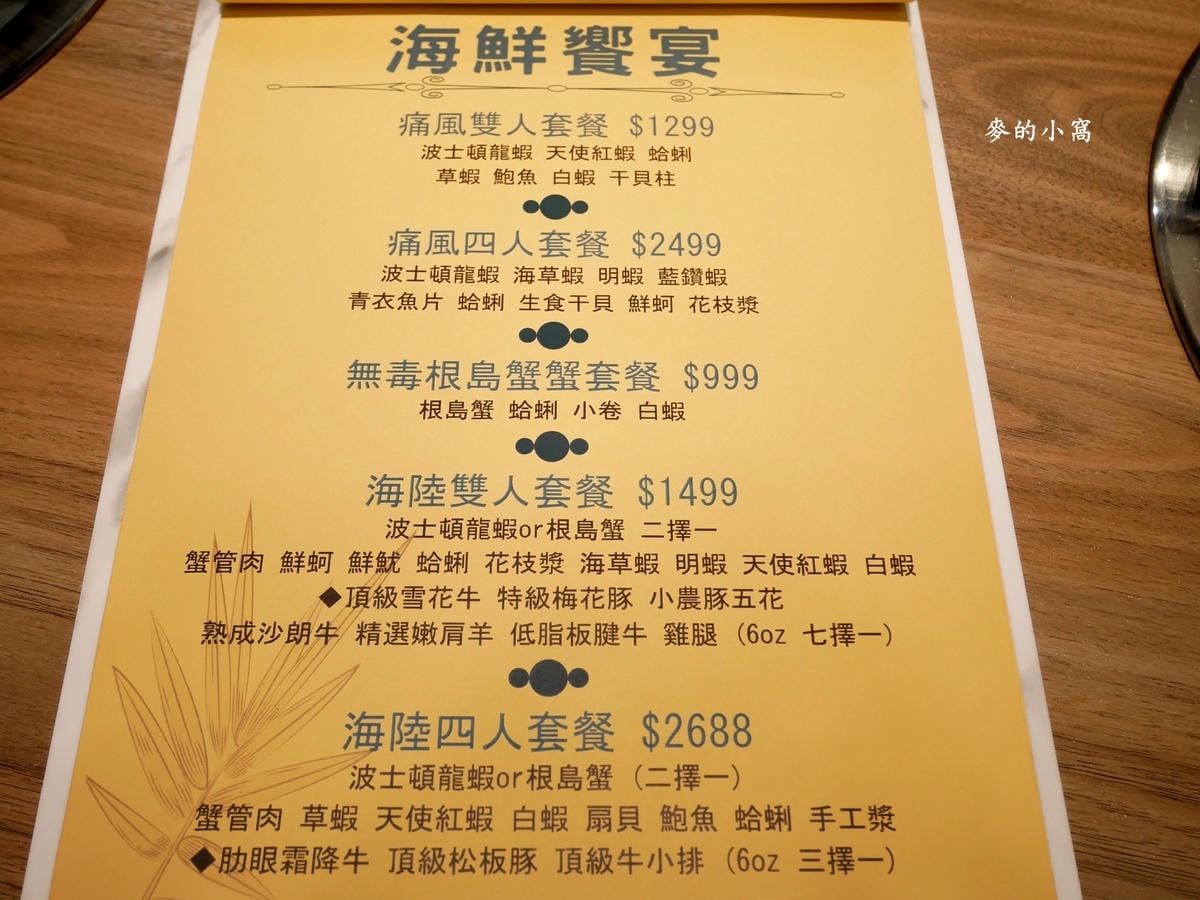 海鮮饗宴
麥的小窩
痛風雙人套餐 $1299
波士頓龍蝦 天使紅蝦 蛤蜊
草蝦 鮑魚 白蝦 干貝柱
痛風四人套餐 $2499
波士頓龍蝦 海草蝦 明蝦 藍鑽蝦
青衣魚片 蛤蜊 生食干貝 鮮蚵 花枝漿
無毒根島蟹蟹套餐 $999
根島蟹 蛤蜊 小卷 白蝦
海陸雙人套餐 $1499
波士頓龍蝦or根島蟹 二擇一
蟹管肉 鮮蚵 鮮魷 蛤蜊 花枝漿 海草蝦 明蝦 天使紅蝦 白蝦
◆頂級雪花牛 特級梅花豚 小農豚五花
熟成沙朗牛 精選嫩肩羊 低脂板腱牛 雞腿 (6oz 七擇一)
海陸四人套餐 $2688
波士頓龍蝦or根島蟹 (二擇一)
蟹管肉 草蝦 天使紅蝦 白蝦 扇貝 鮑魚 蛤蜊 手工漿
◆肋眼霜降牛 頂級松板豚 頂級牛小排 (6oz 三擇一)